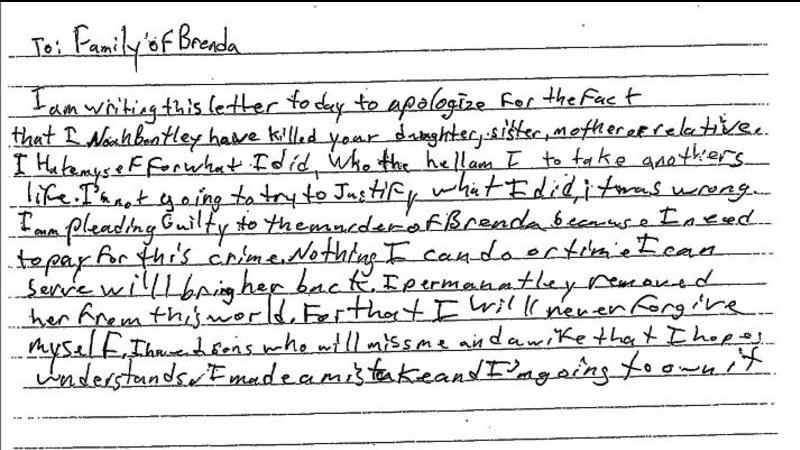 To: Family of Brenda
I am writing this letter today to apologize for the fact
that I Noah Bontley have killed your daughter, sister, mother or relative.
I Hate myself for what I did, Who the hell am I to take anothers
life. I'm not going to try to Justify what I did, it was wrong.
I am pleading Guilty to the murder of Brenda because I need
to pay for this crime. Nothing I can do or time I can
serve will bring her back. I permanatley removed
her from this world. For that I will never forgive
myself. I have sons who will miss me and a wife that I hope
understands. I made a mistake and I'm going to own it